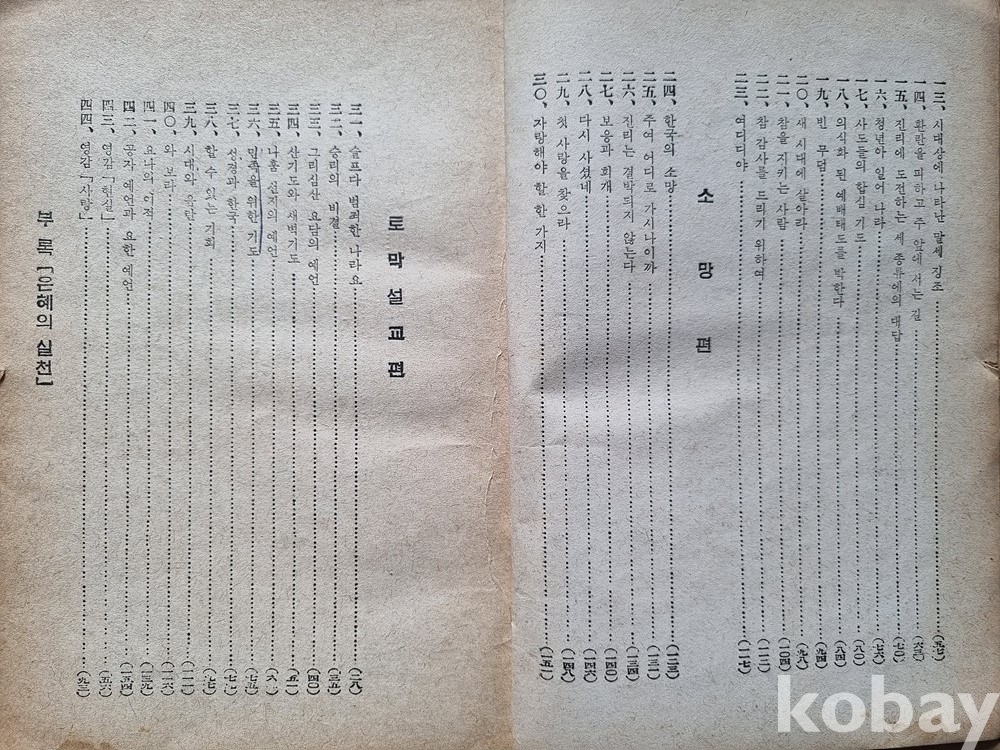 一三、시대상에 나타난 말세 징조
一四、환란을 피하고 주 앞에 서는 길 (六三)
一五、진리에 도전하는 세 종류에의 대답 (七〇)
一六、청년아 일어 나라 (七六)
一七、사도들의 합심 기도 (八〇)
一八、의식화 된 예배태도를 박한다 (八四)
一九、빈 무덤 (九四)
二〇、새 시대에 살아라 (九八)
二一、참을 지키는 사람 (一〇四)
二二、참 감사를 드리기 위하여 (一一二)
二三、여디디야 (一一七)
소 망 편
二四、한국의 소망 (一二三)
二五、주여 어디로 가시나이까 (一三一)
二六、진리는 결박되지 않는다 (一三四)
二七、보응과 회개 (一四二)
二八、다시 사셨네 (一四六)
二九、첫 사랑을 찾으라 (一四八)
三〇、자랑해야 할 한 가지 (一五一)
토 막 설 교 편
三一、슬프다 범죄한 나라요
三二、승리의 비결
三三、그리심산 요담의 예언
三四、산기도와 새벽기도
三五、나훔 선지의 예언
三六、민족을 위한 기도
三七、성경과 한국
三八、할 수 있는 기회
三九、시대와 환란
四〇、와 보라
四一、요나의 이적
四二、공자 예언과 요한 예언
四三、영감「현실」
四四、영감「사랑」
부 록 「은혜의 실천」
kobay